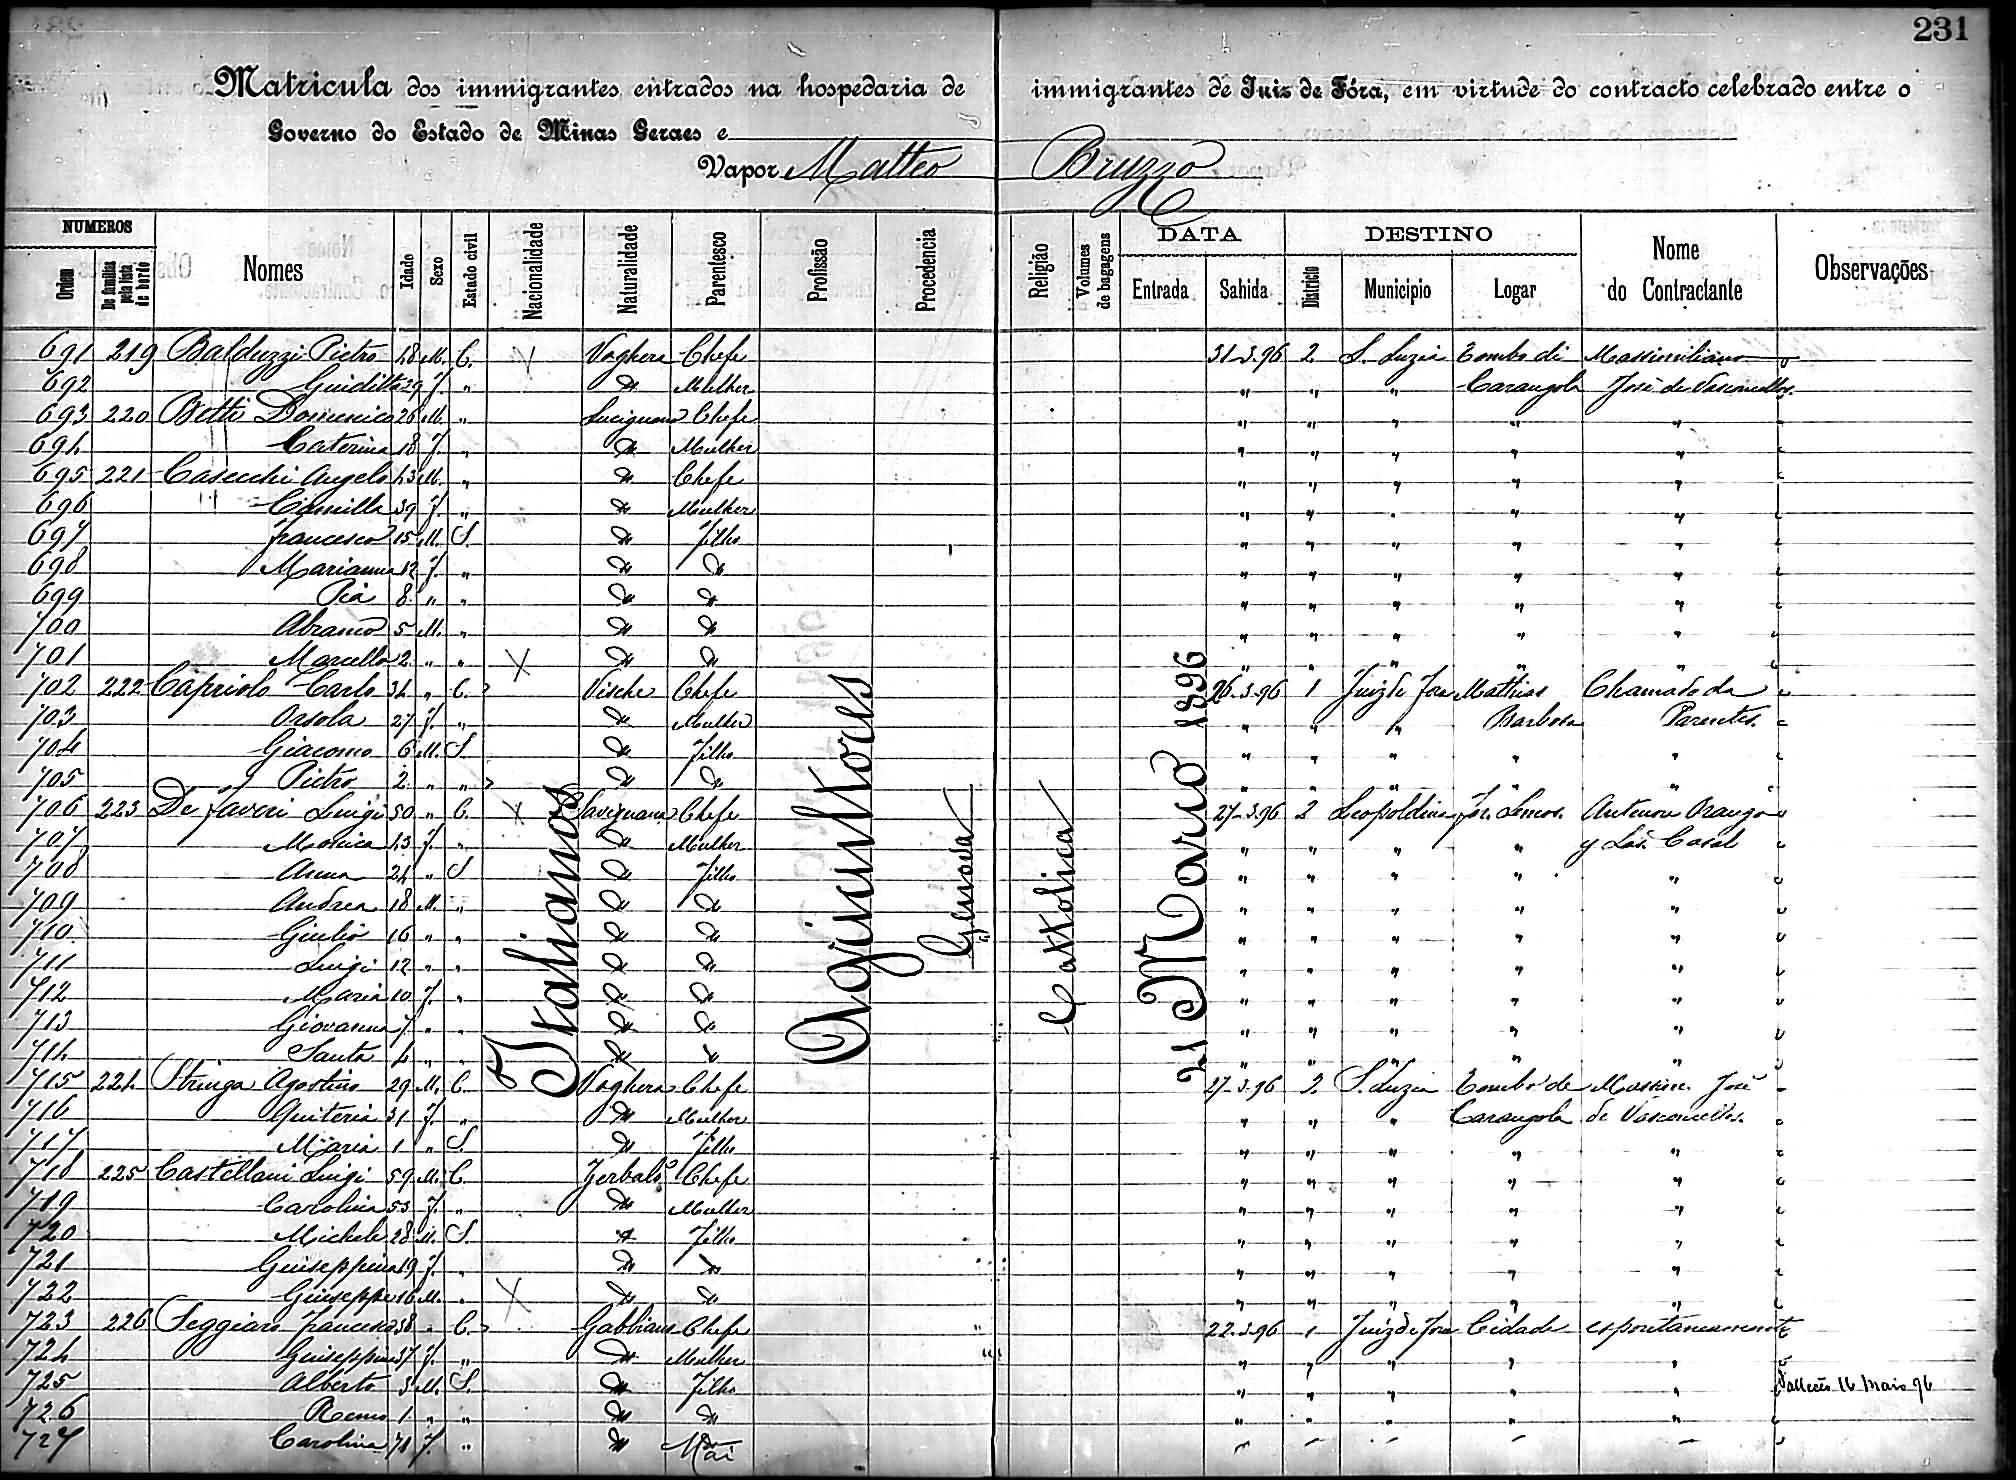 231
Matricula dos immigrantes entrados na hospedaria de immigrantes de Juiz de Fóra, em virtude do contracto celebrado entre o
Governo do Estado de Minas Geraes e
Vapor Matteo Bruzzo
NUMEROS DATA DESTINO
Ordem De familias pela lista de bordo Nomes Idade Sexo Estado civil Nacionalidade Naturalidade Parentesco Profissão Procedencia Religião Volumes de bagagens Entrada Sahida Districto Municipio Logar Nome do Contractante Observações
Italianos Agricultores Genova Cattolica 21 Março 1896
691 219 Balduzzi Pietro 48 M. C. Voghera Chefe 31-3-96 2 S. Luzia Tombo di Massimiliano
692 Guiditta 29 F. " D. Mulher " " " Carangola José de Vasconcellos
693 220 Betti Domenico 26 M. " Lucignano Chefe " " " " "
694 Caterina 18 F. " D. Mulher " " " " "
695 221 Casecchi Angelo 43 M. " D. Chefe " " " " "
696 Camilla 39 F. " D. Mulher " " " " "
697 Francesco 15 M. S. D. Filho " " " " "
698 Marianna 12 F. " D. D. " " " " "
699 Pia 8 " " D. D. " " " " "
700 Abramo 5 M. " D. D. " " " " "
701 Marcello 2 " " X D. D. " " " " "
702 222 Capriolo Carlo 34 " C. Vische Chefe 26-3-96 1 Juiz de Fora Mathias Chamado da
703 Orsola 27 F. " D. Mulher " " " Barbosa Parentes.
704 Giacomo 6 M. S. D. Filho " " " " "
705 Pietro 2 " " D. D. " " " " "
706 223 De Faveri Luigi 50 " C. X Savignana Chefe 27-3-96 2 Leopoldina Antenor Araujo
707 Monica 43 F. " D. Mulher " " " "
708 Anna 24 " S D. Filho " " " " "
709 Andrea 18 M. " D. D. " " " " "
710 Giulio 16 " " D. D. " " " " "
711 Luigi 12 " " D. D. " " " " "
712 Maria 10 F. " D. D. " " " " "
713 Giovanna 7 " " D. D. " " " " "
714 Santa 4 " " D. D. " " " " "
715 224 Stringa Agostino 29 M. C. Voghera Chefe 27-3-96 2. S. Luzia Tombo de Massim. José
716 Quiteria 31 F. " D. Mulher " " " Carangola de Vasconcellos.
717 Maria 1 " S. D. Filho " " " " "
718 225 Castellani Luigi 59 M. C. Zerbalò Chefe " " " " "
719 Carolina 53 F. " D. Mulher " " " " "
720 Michele 28 M. S. D. Filho " " " " "
721 Giuseppina 19 F. " D. D. " " " " "
722 Giuseppe 16 M. " X D. D. " " " " "
723 226 Seggiaro Francesco 38 " C. Gabbiano Chefe 22-3-96 1 Juiz de Fora Cidade espontaneamente
724 Guiseppina 37 F. " D. Mulher " " " " "
725 Alberto 3 M. S. D. Filho " " " " " Falleceu 16 Maio 96
726 Remo 1 " " D. D. " " " " "
727 Carolina 71 F. " D. Mãi " " " " "